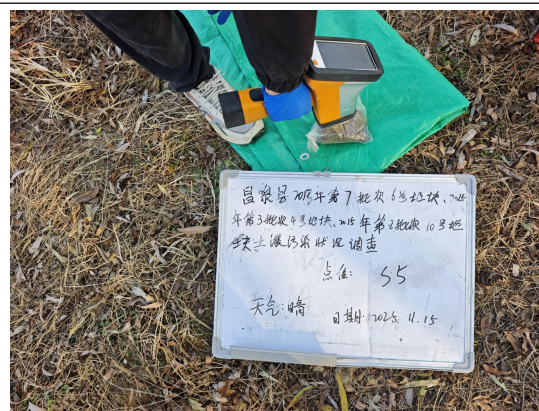 昌黎县2015年第7批次6号地块、2015
年第3批次4号地块、2015年第2批次10号地
块土壤污染状况调查
点位: S5
天气:晴 日期:2025.11.15